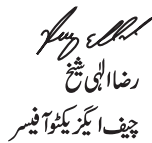 رضا الہٰی شیخ
چیف ایگزیکٹو آفیسر